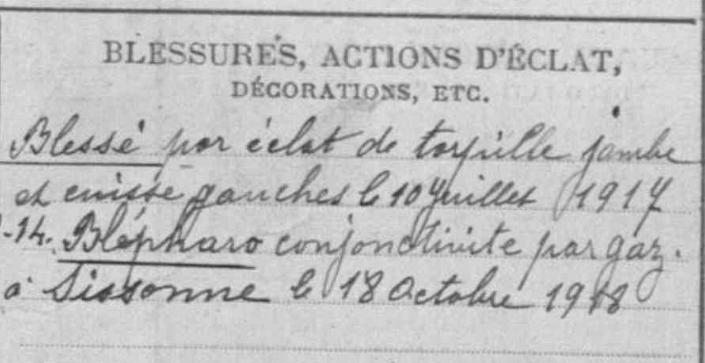 BLESSURES, ACTIONS D'ÉCLAT,
DÉCORATIONS, ETC.
Blessé par éclat de torpille jambe
et cuisse gauches le 10 Juillet 1917
-14. Blépharo conjonctivite par gaz.
à Sissonne le 18 Octobre 1918